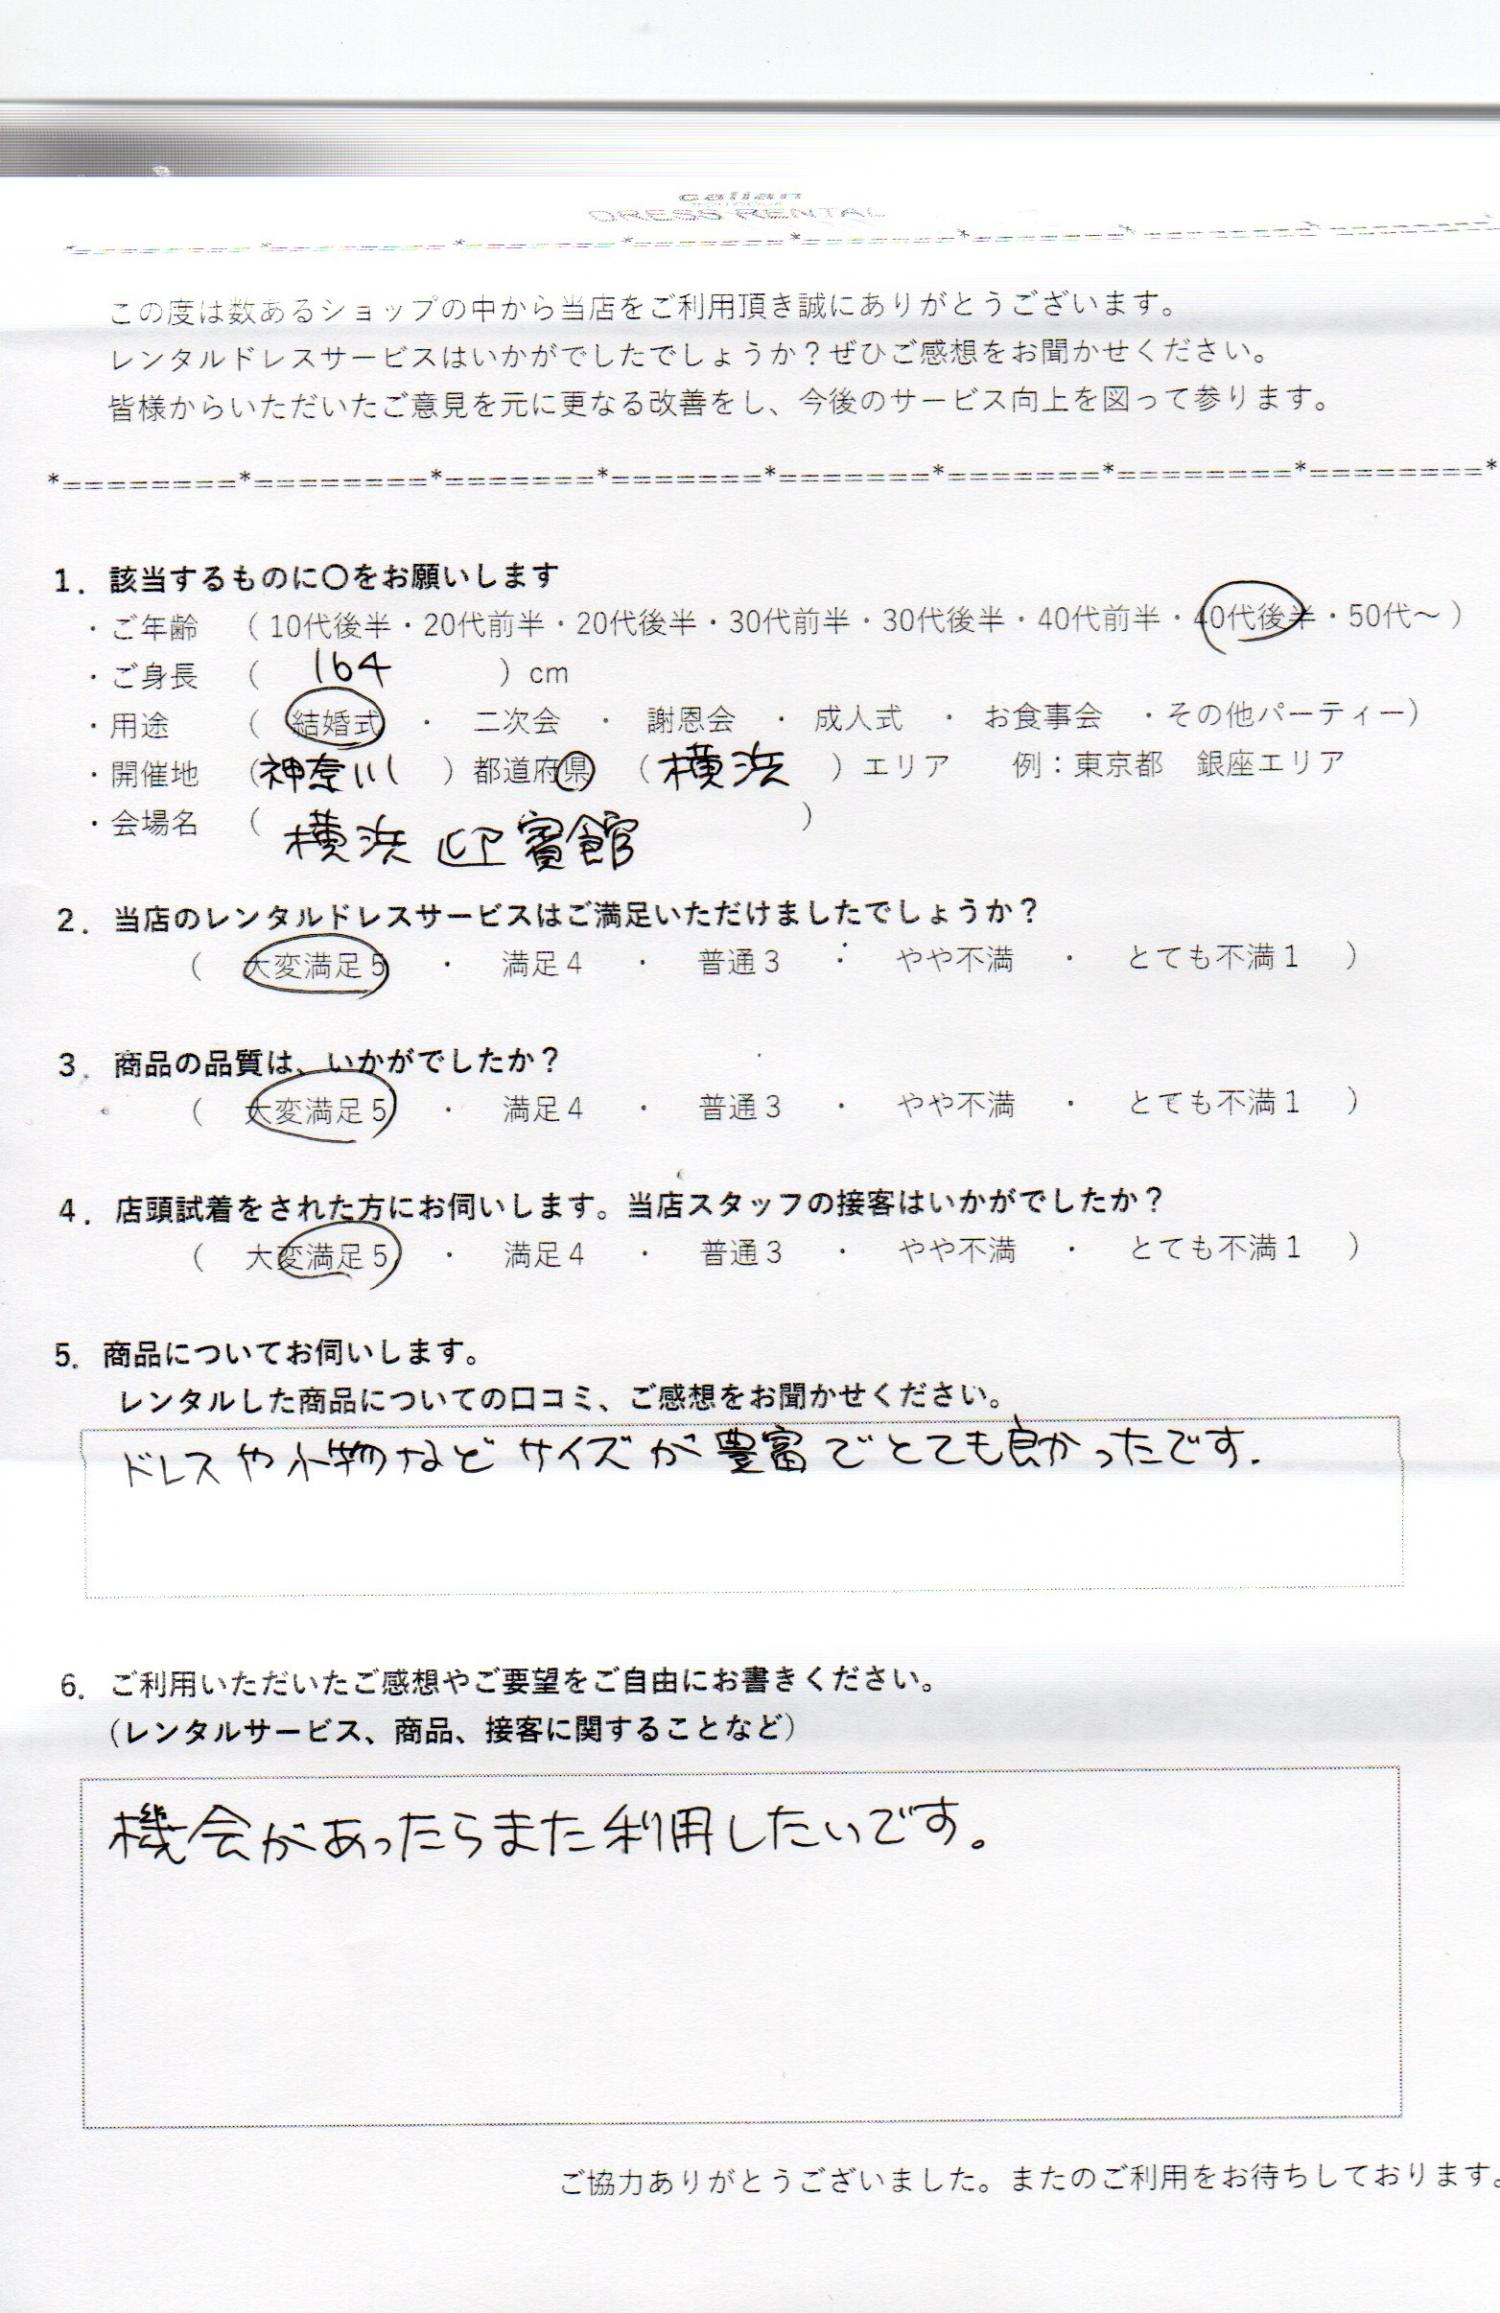 callan
DRESS RENTAL
*========*========*=======*=======*=======*=======*========*========*
この度は数あるショップの中から当店をご利用頂き誠にありがとうございます。
レンタルドレスサービスはいかがでしたでしょうか？ぜひご感想をお聞かせください。
皆様からいただいたご意見を元に更なる改善をし、今後のサービス向上を図って参ります。
*========*========*=======*=======*=======*=======*========*========*
1．該当するものに〇をお願いします
・ご年齢　（ 10代後半・20代前半・20代後半・30代前半・30代後半・40代前半・40代後半・50代～ ）
・ご身長　（　164　）cm
・用途　（　結婚式　・　二次会　・　謝恩会　・　成人式　・　お食事会　・その他パーティー）
・開催地　（神奈川　）都道府県　（ 横浜　）エリア　例：東京都　銀座エリア
・会場名　（　横浜迎賓館　）
2．当店のレンタルドレスサービスはご満足いただけましたでしょうか？
（　大変満足５　・　満足４　・　普通３　・　やや不満　・　とても不満１　）
3．商品の品質は、いかがでしたか？
（　大変満足５　・　満足４　・　普通３　・　やや不満　・　とても不満１　）
4．店頭試着をされた方にお伺いします。当店スタッフの接客はいかがでしたか？
（　大変満足５　・　満足４　・　普通３　・　やや不満　・　とても不満１　）
5．商品についてお伺いします。
レンタルした商品についての口コミ、ご感想をお聞かせください。
ドレスや小物などサイズが豊富でとても良かったです.
6．ご利用いただいたご感想やご要望をご自由にお書きください。
（レンタルサービス、商品、接客に関することなど）
機会があったらまた利用したいです。
ご協力ありがとうございました。またのご利用をお待ちしております。